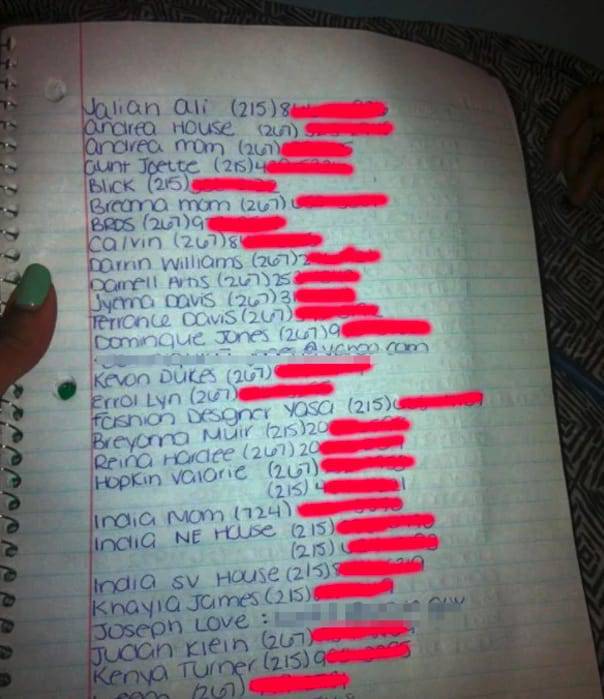 Jalian Ali (215) 8
Andrea House (267)
Andrea mom (267)
Aunt Joette (215) 4
Blick (215)
Breanna mom (267)
BROS (267) 9
Calvin (267) 8
Darrin Williams (267) 2
Darnell Arns (267) 25
Jyenna Davis (267) 3
Terrance Davis (267)
Dominique Jones (267) 9
@yahoo.com
Kevon Dukes (267)
Errol Lyn (267)
Fashion Designer Yasa (215)
Breyanna Muir (215) 20
Reina Hardee (267) 20
Hopkin Valorie (267)
(215) 4
India Mom (724)
India NE House (215)
(215)
India SV House (215)
Khayla James (215)
Joseph Love :
Judan Klein (267)
Kenya Turner (215) 9
(267)